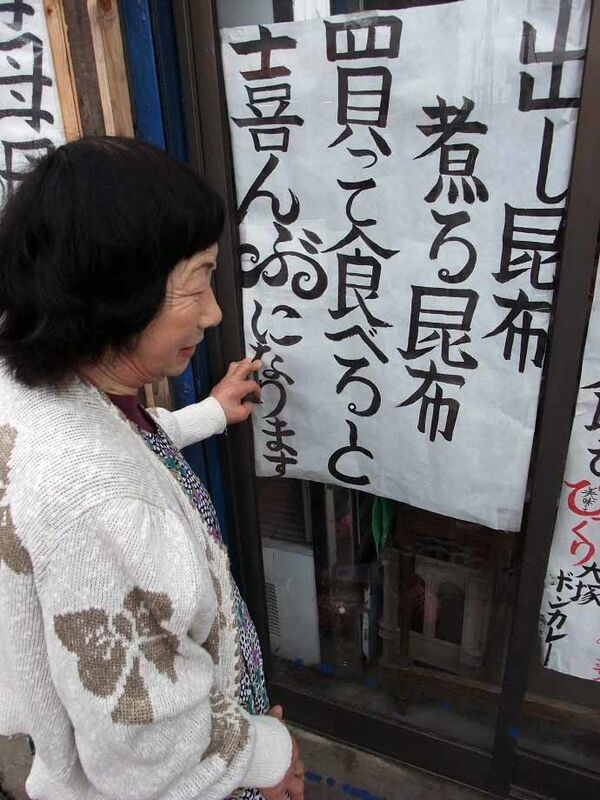 出し昆布
煮る昆布
買って食べると
喜んぶになります
美味
びっくり
大塚
ボンカレー